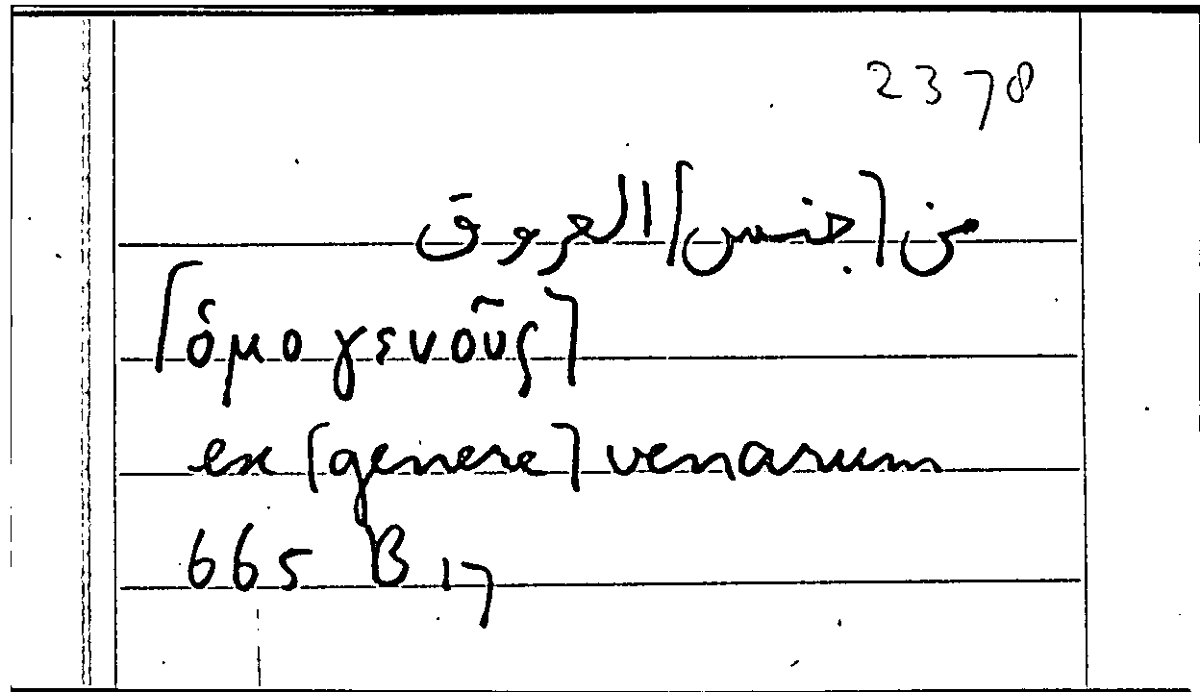 2378
من [جنس] العروق
[ὁμογενοῦς]
ex [genere] venarum
665 B 17